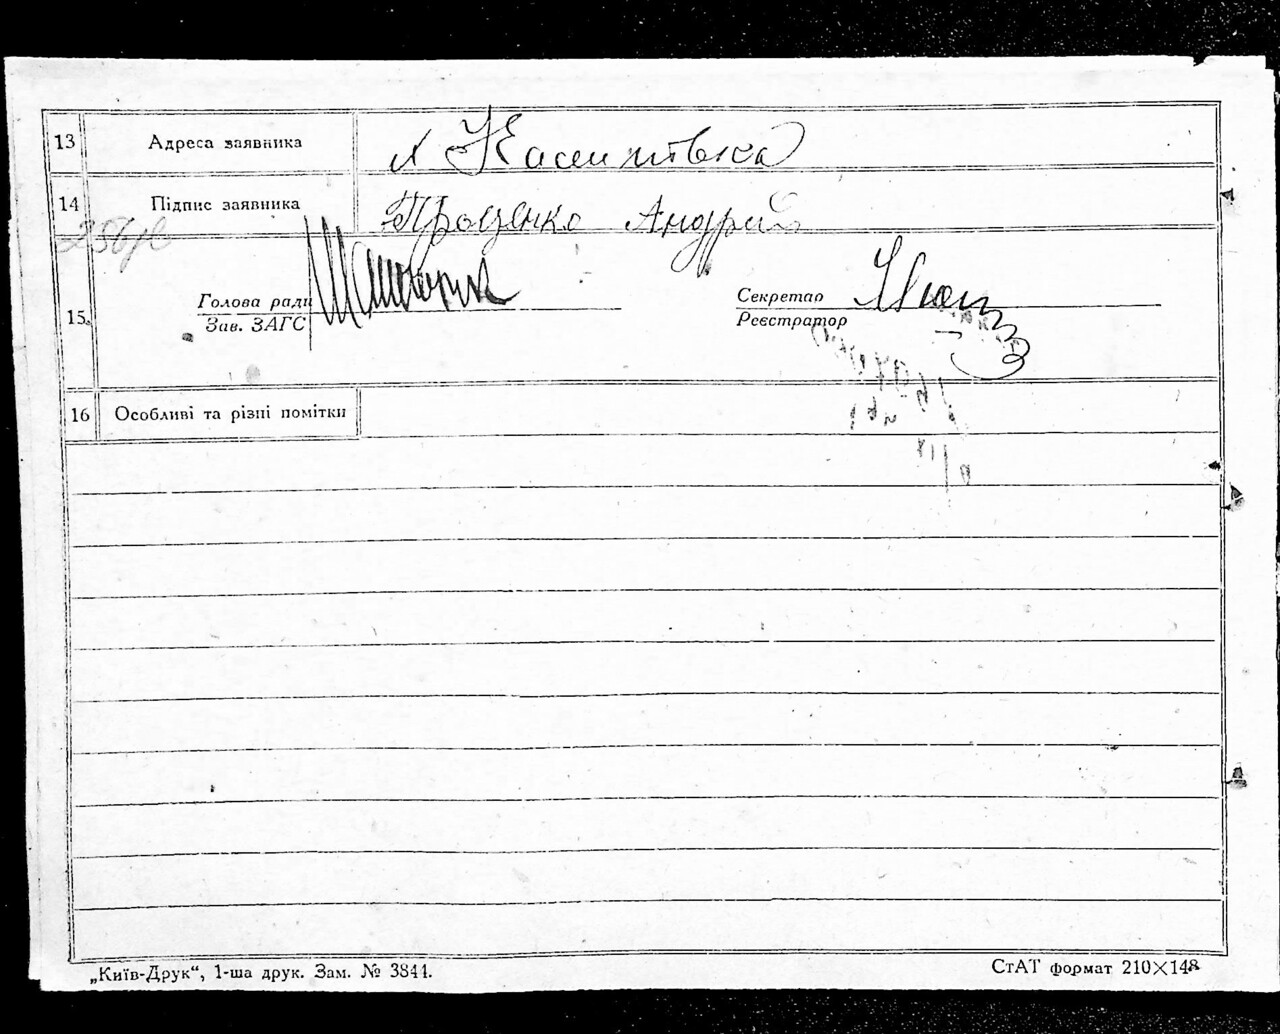 13 Адреса заявника х Касьитівка
14 Підпис заявника Проценко Андрій
15. Голова ради
Зав. ЗАГС
Секретар
Реєстратор
16 Особливі та різні помітки
„Київ-Друк“, 1-ша друк. Зам. № 3844. СтАТ формат 210×148